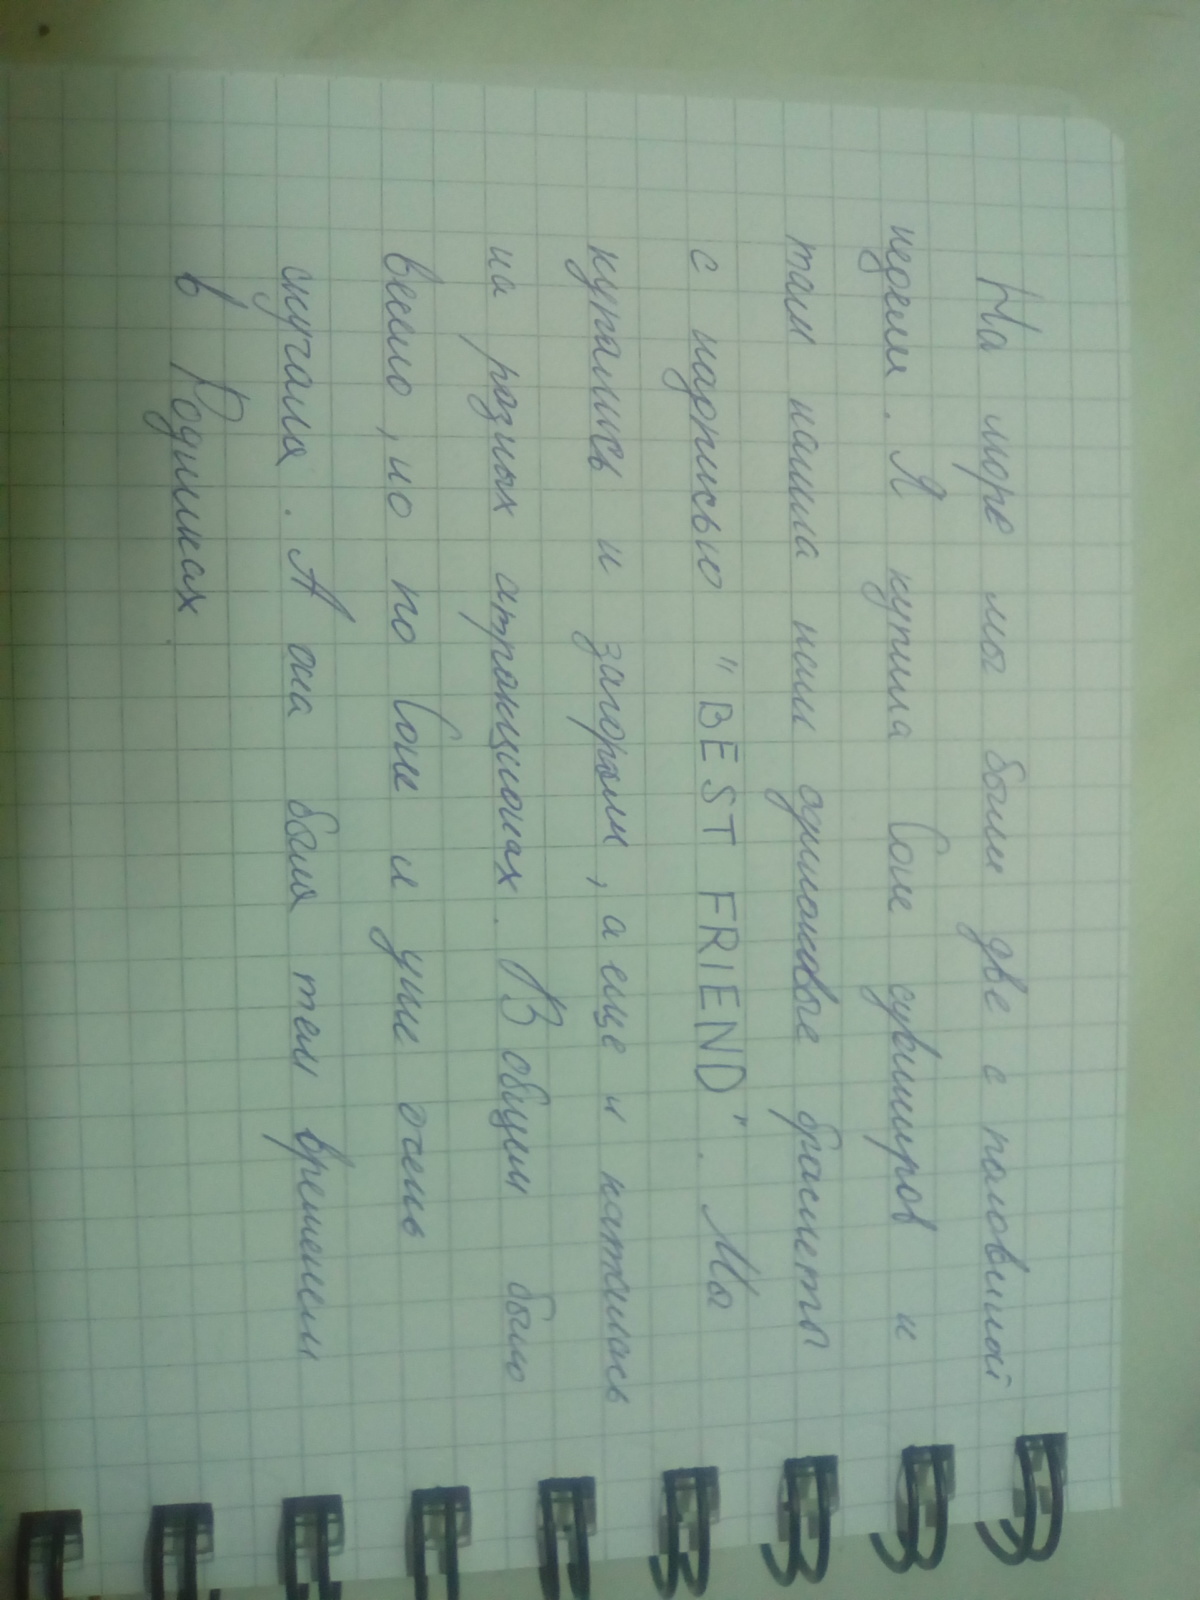 На море мы были две с половиной
недели. Я купила Соне сувениров и
там нашла нам одинаковые браслеты
с надписью "BEST FRIEND". Мы
купались и загорали, а еще и катались
на разных атракционах. В общем было
весело, но по Соне я уже очень
скучала. А она была тем временем
в Родниках.